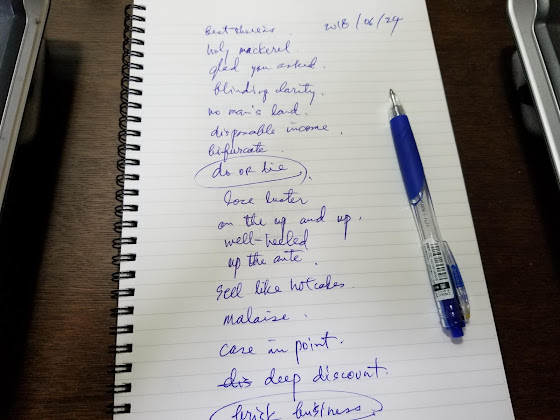 2018/06/24
holy mackerel.
glad you asked.
blinding clarity.
no man's land.
disposable income.
bifurcate.
do or die.
lose luster
on the up and up.
well-heeled
up the ante.
sell like hotcakes.
malaise.
case in point.
dis deep discount.
brisk business